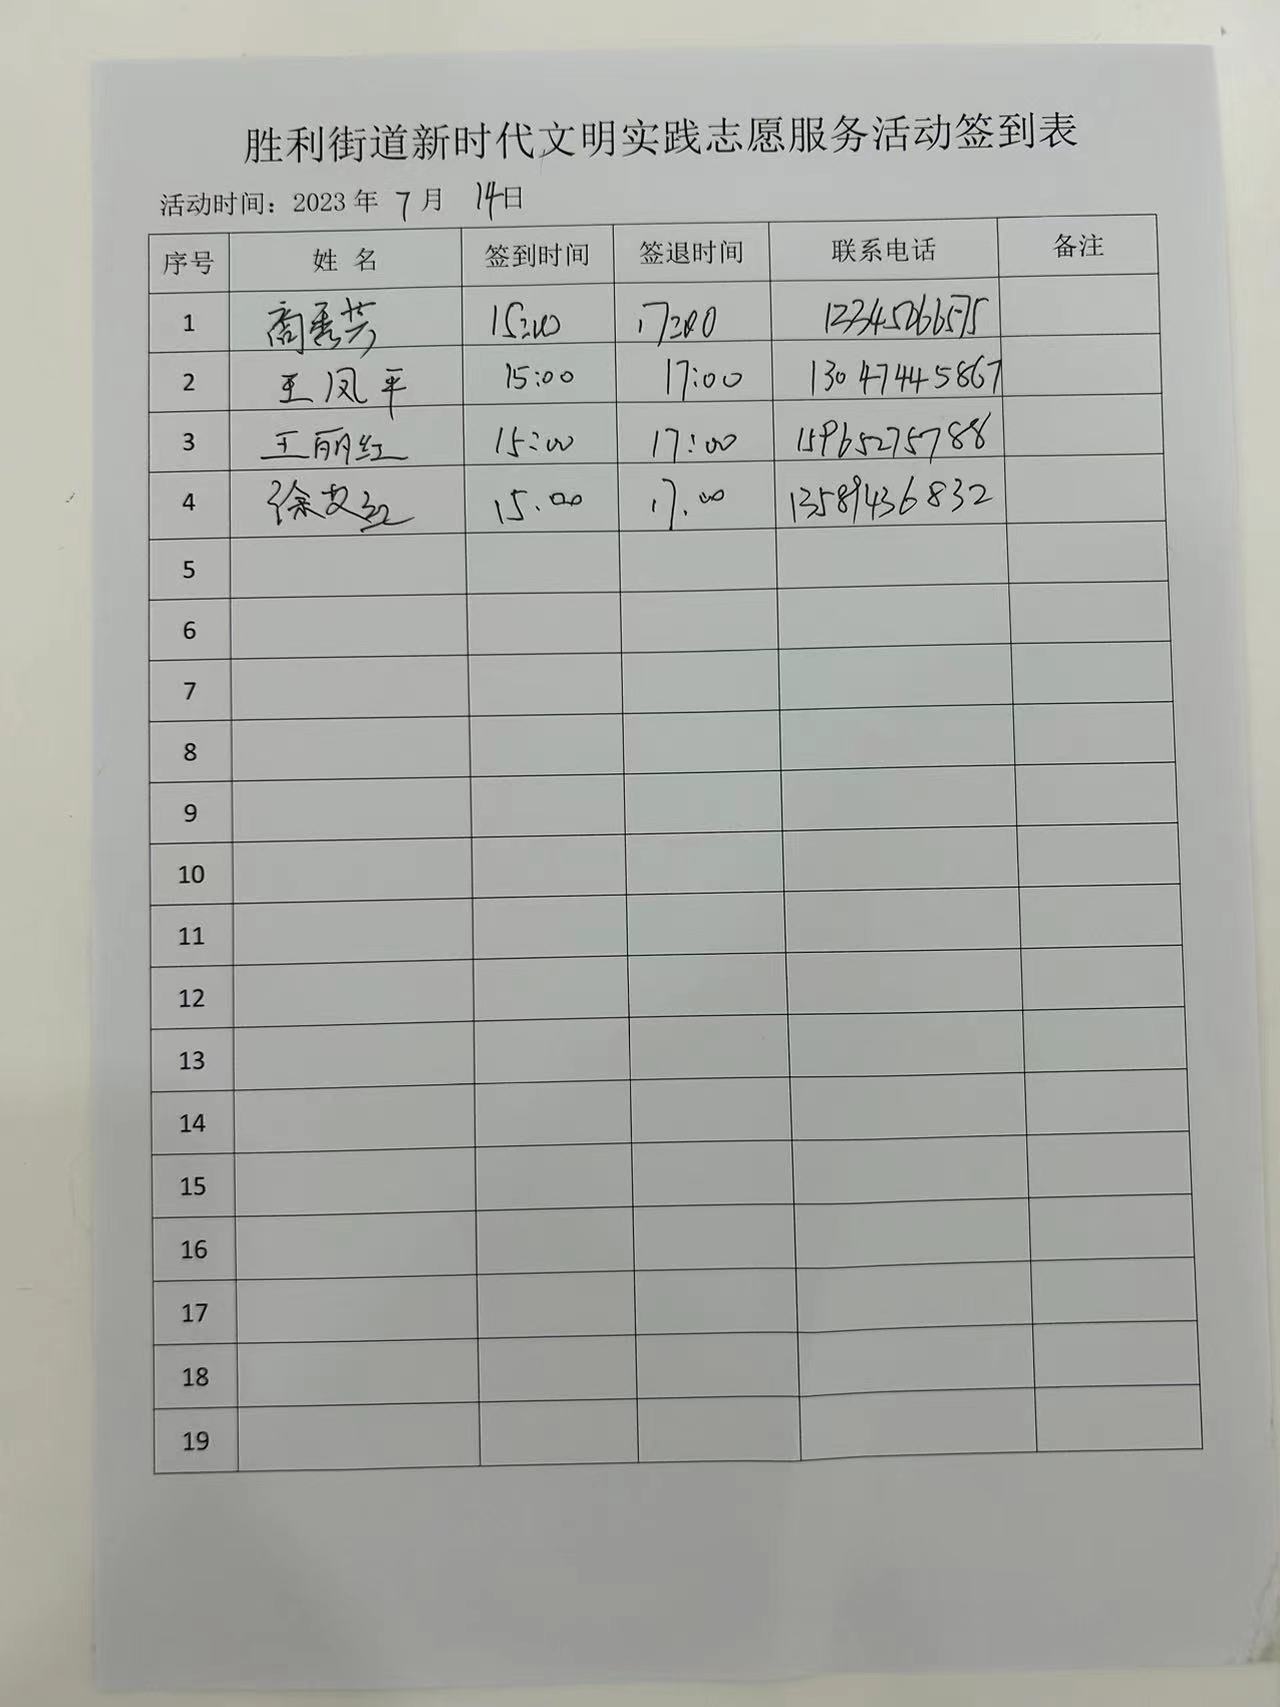 胜利街道新时代文明实践志愿服务活动签到表
活动时间：2023年 7月 14日
序号 姓名 签到时间 签退时间 联系电话 备注
1 商秀芳 15:00 17:00
2 王凤平 15:00 17:00 13047445867
3 王丽红 15:00 17:00 15965275788
4 徐艾红 15.00 17.00 13589436832
5
6
7
8
9
10
11
12
13
14
15
16
17
18
19